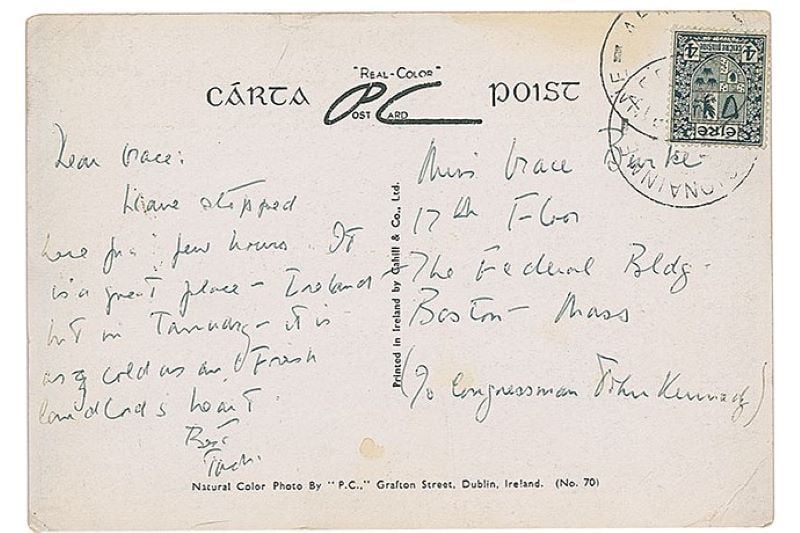 CÁRTA "REAL-COLOR" POST CARD POIST
4 4
ÉIRE
Dear Grace:
Have stopped
here for a few hours. It
is a great place – Ireland –
but in January – it is
as cold as an Irish
landlord's heart
Best
Jack.
Printed in Ireland by Cahill & Co., Ltd.
Miss Grace Burke
17th Floor
The Federal Bldg.
Boston – Mass
(c/o Congressman John Kennedy)
Natural Color Photo By "P.C.," Grafton Street, Dublin, Ireland. (No. 70)